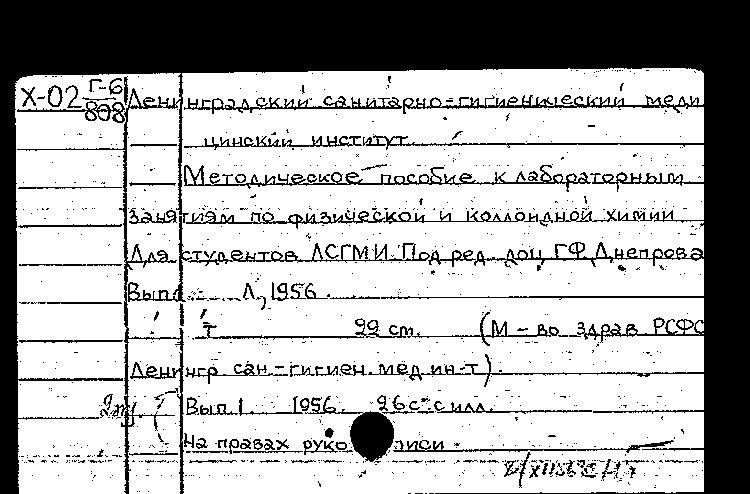 Х-02 Г-6/808 Ленинградский санитарно-гигиенический меди
цинский институт.
Методическое пособие к лабораторным
занятиям по физической и коллоидной химии
Для студентов ЛСГМИ. Под ред. доц Г.Ф. Днепрова
Вып. Л, 1956.
т 29 cm. (М-во здрав РСФС
Ленингр сан.-гигиен. мед ин-т).
Вып 1. 1956. 26 с. с илл.
На правах руко писи